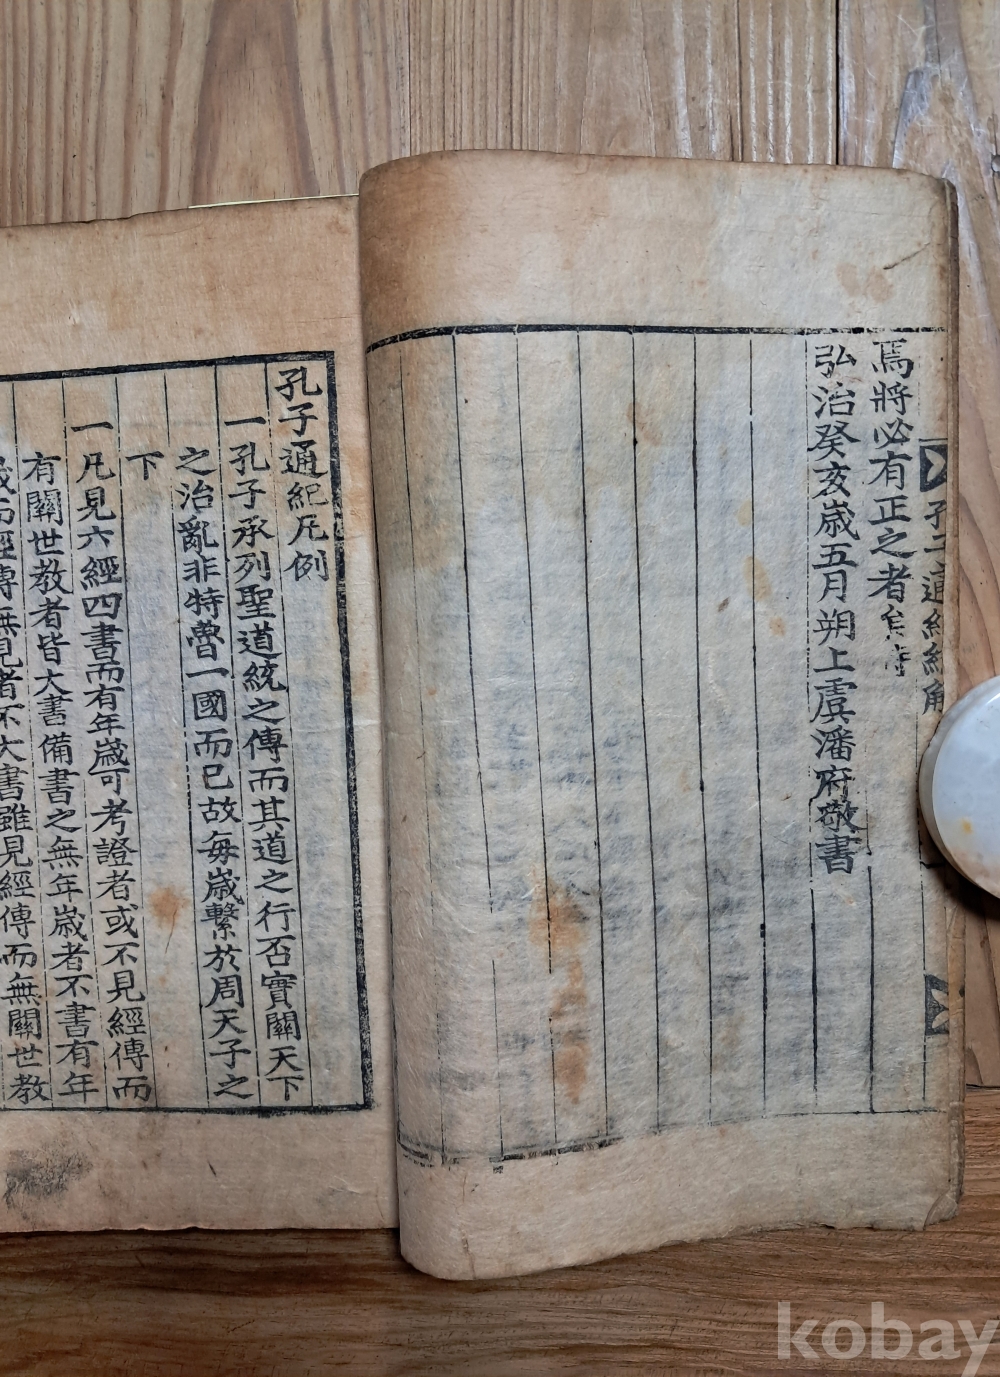 焉將必有正之者
弘治癸亥歲五月朔上虞潘府敬書
孔子通紀凡例
一孔子承列聖道統之傳而其道之行否實關天下
之治亂非特魯一國而已故每歲繫於周天子之
下
一凡見六經四書而有年歲可考證者或不見經傳而
有關世教者皆大書備書之無年歲者不書有年
經傳無見者不大書雖見經傳而無關世教
kobay